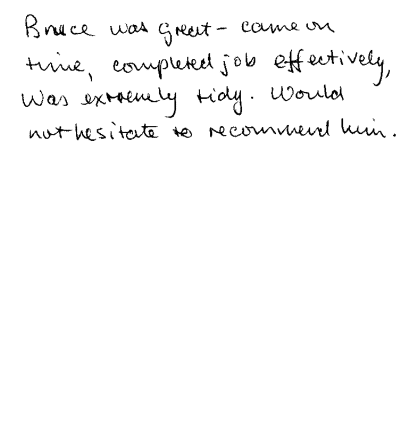 Bruce was great - came on
time, completed job effectively,
was extremely tidy. Would
not hesitate to recommend him.